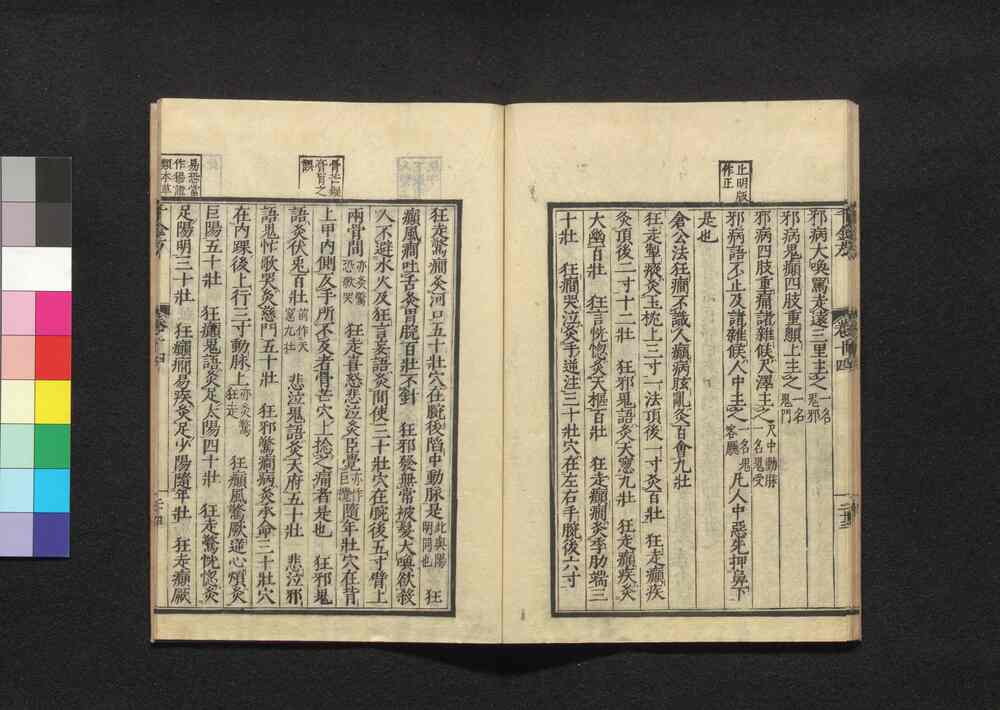 止明版
作正
千金方
卷十四
二十三
邪病大喚罵走遠三里主之一名鬼邪
邪病鬼癲四肢重顖上主之一名鬼門
邪病四肢重痛諸雜候尺澤主之尺中動脉一名鬼受
邪病語不止及諸雜候人中主之一名鬼客廳凡人中惡先押鼻下
是也
倉公法狂癎不識人癲病眩亂灸百會九壯
狂走掣瘲灸玉枕上三寸一法頂後一寸灸百壯 狂走癲疾
灸頂後二寸十二壯 狂邪鬼語灸天窻九壯 狂走癲疾灸
大幽百壯 狂言恍惚灸天樞百壯 狂走癲癎灸季肋端三
十壯 狂癎哭泣灸手逆注三十壯穴在左右手腕後六寸
骨芒疑
脊盲之
誤
易恐當
作瘍證
類本草
狂走驚癎灸河口五十壯穴在腕後陷中動脉是此與陽明同也 狂
癲風癎吐舌灸胃脘百壯不針 狂邪發無常被髮大喚欲殺
人不避水火及狂言妄語灸間使三十壯穴在腕後五寸臂上
兩骨間亦灸驚恐歌哭 狂走喜怒悲泣灸臣覺亦作巨攬隨年壯穴在背
上甲内側反手所不及者骨芒穴上捻之痛者是也 狂邪鬼
語灸伏兎百壯前作天窻九壯 悲泣鬼語灸天府五十壯 悲泣邪
語鬼忙歌哭灸慈門五十壯 狂邪驚癎病灸承命三十壯穴
在内踝後上行三寸動脉上亦灸驚狂走 狂癲風驚厥逆心煩灸
巨陽五十壯 狂癲鬼語灸足太陽四十壯 狂走驚恍惚灸
足陽明三十壯 狂癲癎易疾灸足少陽隨年壯 狂走癲厥
千金方
卷十四
二十四